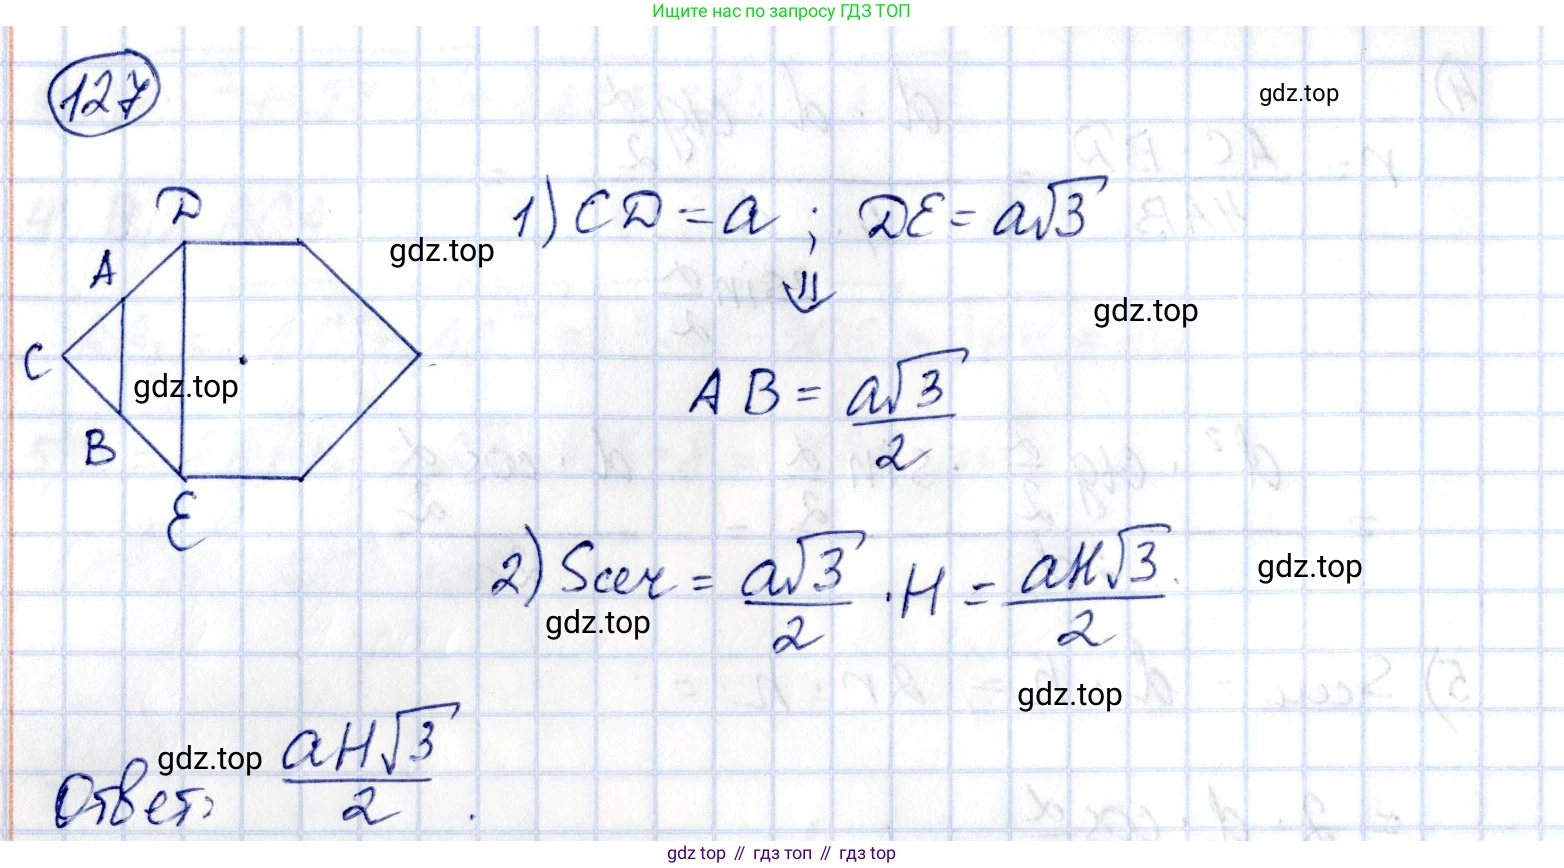 Ищите нас по запросу ГДЗ ТОП
127
gdz.top
D
1) CD = a ; DE = a√3
gdz.top
A
⇓
gdz.top
C
gdz.top
AB = a√3/2
B
E
2) Sсеч = a√3/2 · H = aH√3/2.
gdz.top
gdz.top
gdz.top
gdz.top
Ответ: aH√3/2.
gdz top // гдз топ // гдз top